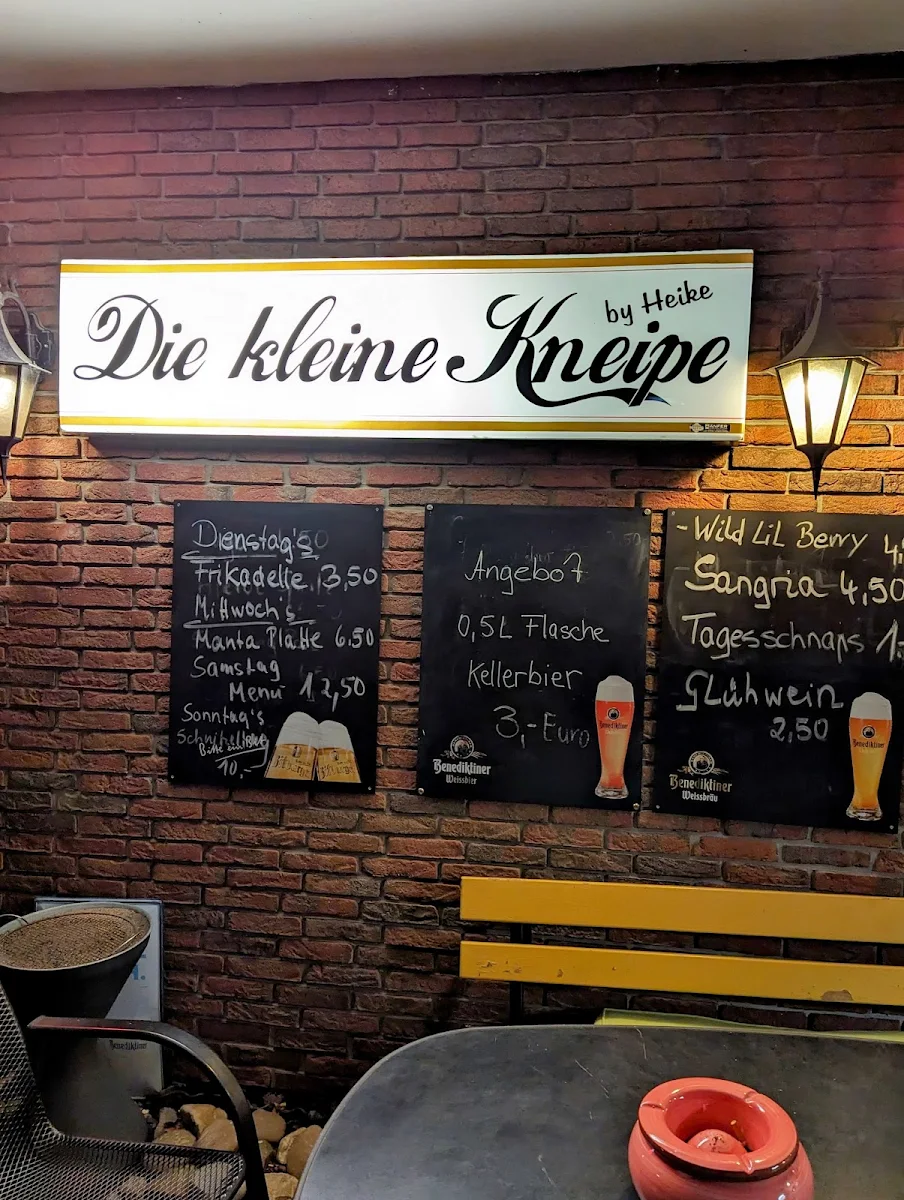 Die kleine Kneipe
by Heike
Dienstag's
Frikadelle 3,50
Mittwoch's
Manta Platte 6.50
Samstag
Menü 12,50
Sonntag's
Bitte
10,-
Angebot
0,5L Flasche
Kellerbier
3,- Euro
Benediktiner
Weissbier
- Wild Lil Berry 4,
Sangria 4,50
Tagesschnaps 1,
Glühwein
2,50
Benediktiner
Weissbräu
Benediktiner